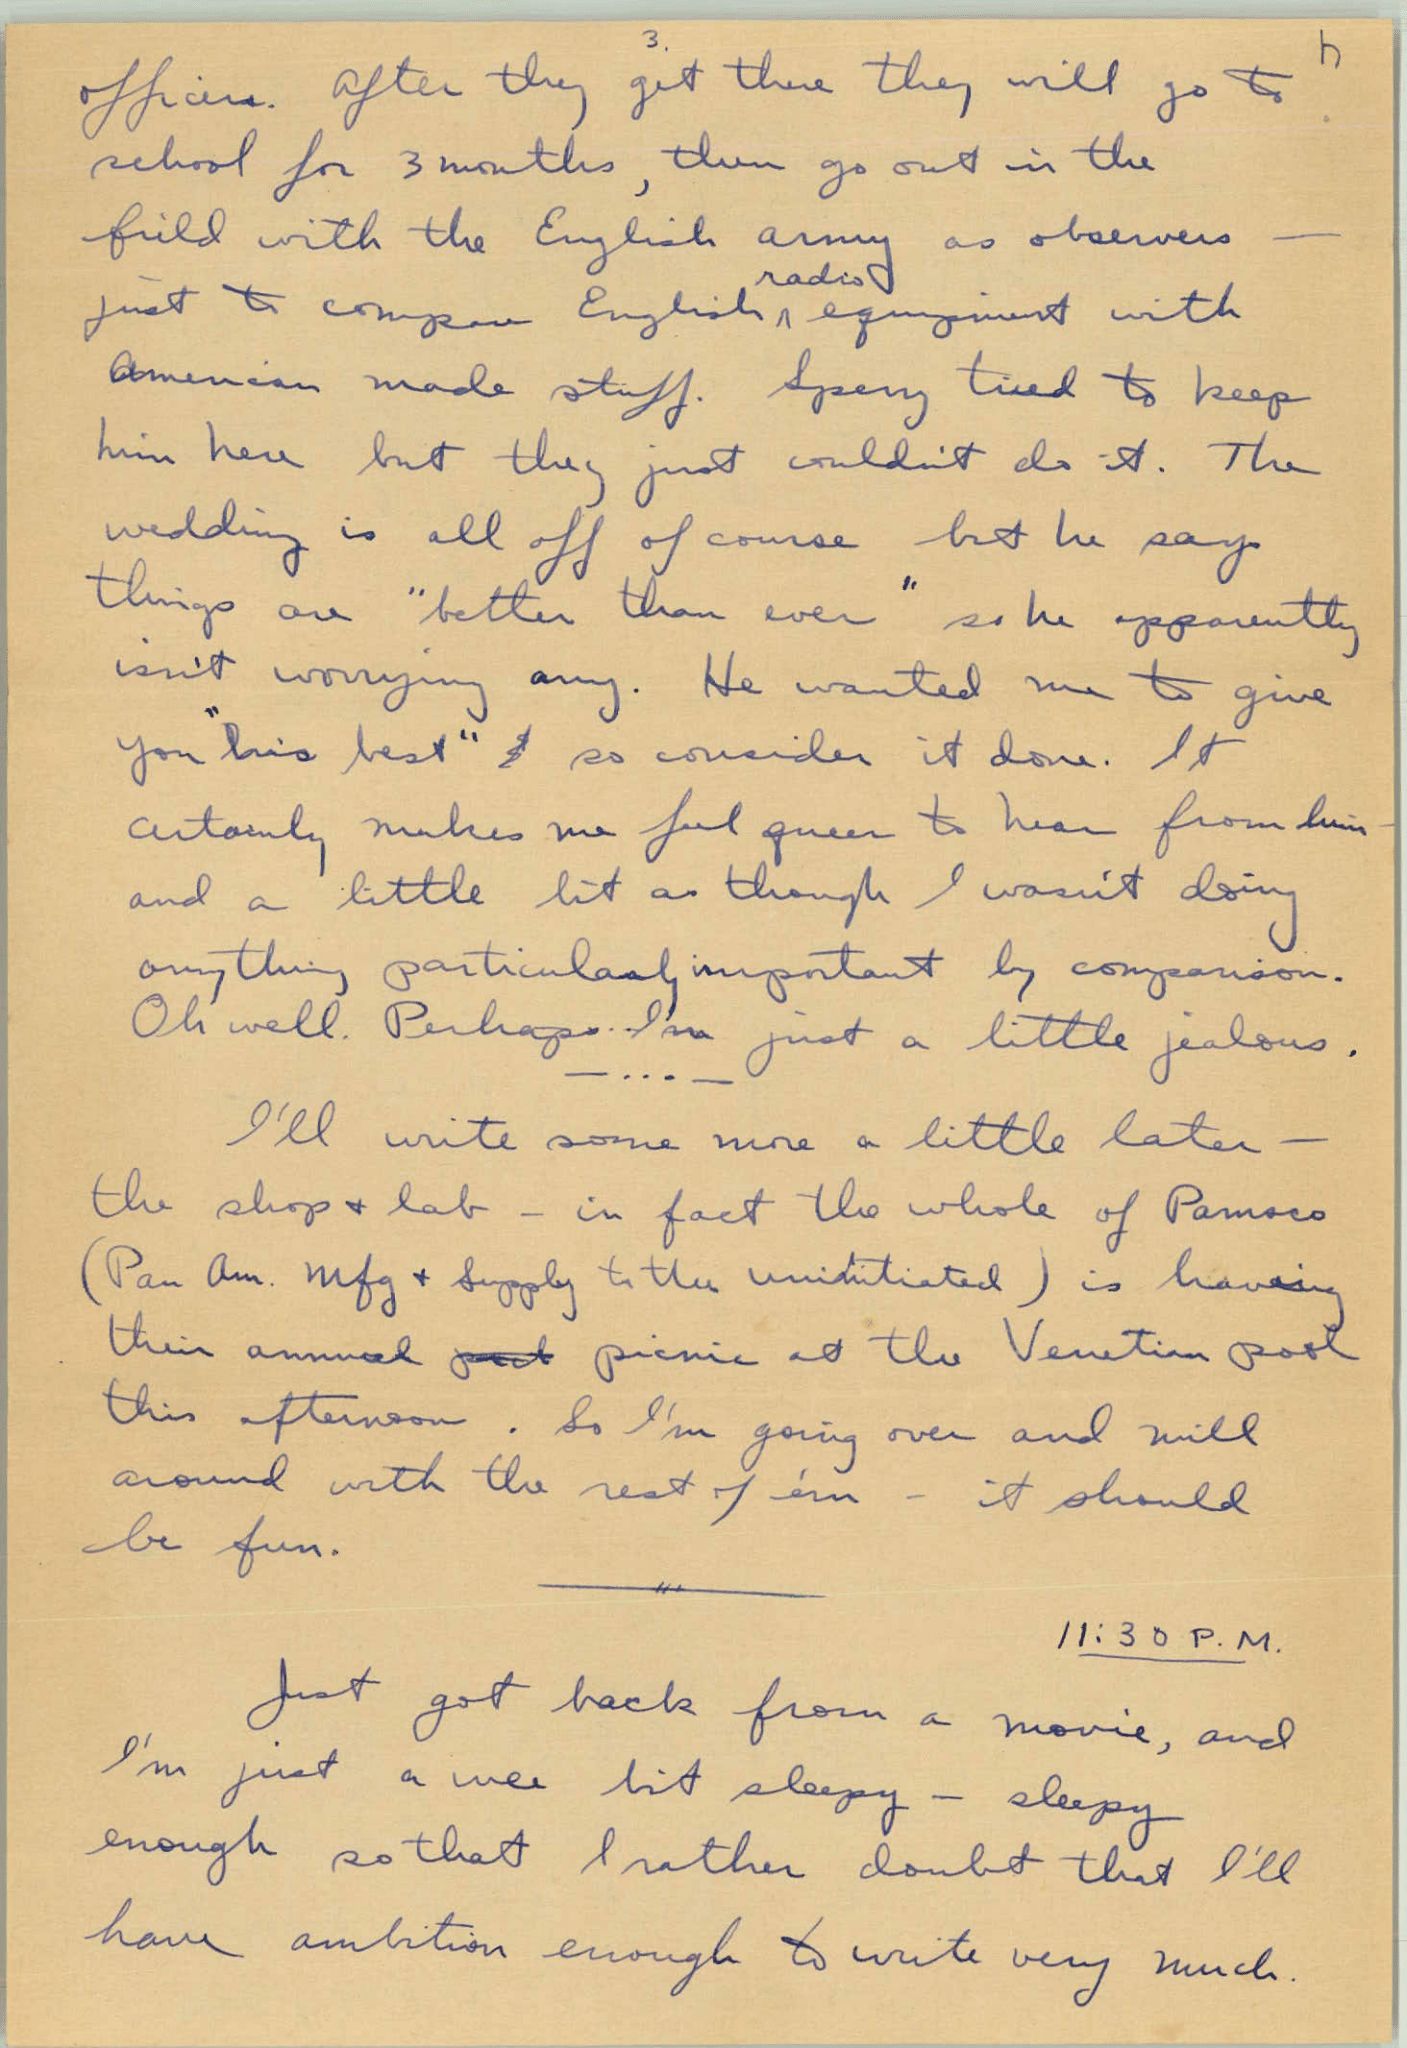 3.
officers. After they get there they will go to
school for 3 months, then go out in the
feild with the English army as observers —
just to compare English ^ radio equipment with
American made stuff. Sperry tried to keep
him here but they just couldn't do it. The
wedding is all off of course but he says
things are "better than ever" so he apparently
isn't worrying any. He wanted me to give
you "his best" so consider it done. It
certainly makes me feel queer to hear from him -
and a little bit as though I wasn't doing
anything particularly important by comparison.
Oh well. Perhaps I'm just a little jealous.
— ... —
I'll write some more a little later —
the shop + lab - in fact the whole of Pamsco
(Pan Am. Mfg + Supply to the uninitiated) is having
their annual picnic at the Venetian pool
this afternoon. So I'm going over and mill
around with the rest of 'em - it should
be fun.
11:30 P.M.
Just got back from a movie, and
I'm just a wee bit sleepy — sleepy
enough so that I rather doubt that I'll
have ambition enough to write very much.